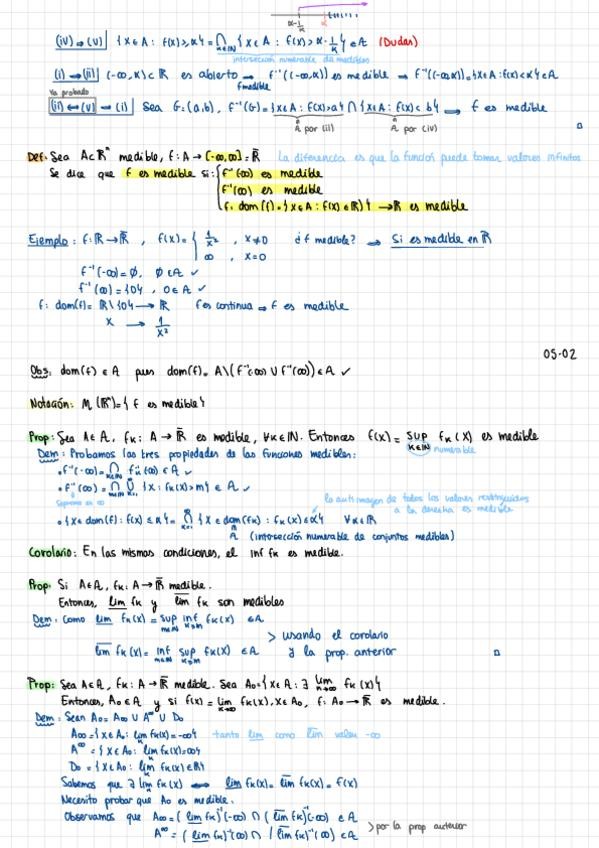 α-1/k α
(iv) ⇒ (v) | {x∈A : f(x) ≥ α} = ⋂_{k∈ℕ} {x∈A : f(x) > α - 1/k} ∈ A (Dudas)
intersección numerable de medibles
(i) ⇒ (ii) | (-∞,α) ⊂ ℝ es abierto → f⁻¹((-∞,α)) es medible → f⁻¹((-∞,α)) = {x∈A : f(x)<α} ∈ A
f medible
Ya probado
(ii) ⇔ (v) ⇒ (i) | Sea G=(a,b), f⁻¹(G) = {x∈A : f(x)>a} ∩ {x∈A : f(x)<b} ⇒ f es medible
A por (iii) A por (iv)
Def: Sea A⊂ℝⁿ medible, f: A → [-∞,∞] = ℝ̄ La diferencia es que la función puede tomar valores infinitos
Se dice que f es medible si: f⁻¹(-∞) es medible
f⁻¹(∞) es medible
f: dom(f) = {x∈A : f(x)∈ℝ} → ℝ es medible
Ejemplo: f: ℝ → ℝ̄, f(x) = { 1/x², x≠0 ¿f medible? ⇒ Si es medible en ℝ̄
∞, x=0
f⁻¹(-∞) = ∅, ∅∈A ✓
f⁻¹(∞) = {0}, 0∈A ✓
f: dom(f) = ℝ\{0} → ℝ f es continua ⇒ f es medible
x → 1/x²
05-02
Obs: dom(f) ∈ A pues dom(f) = A\(f⁻¹(-∞) ∪ f⁻¹(∞)) ∈ A ✓
Notación: M(ℝⁿ) = { f es medible }
Prop: Sea A∈A, fk: A → ℝ̄ es medible, ∀k∈ℕ. Entonces f(x) = sup_{k∈ℕ} fk(x) es medible
numerable
Dem: Probamos las tres propiedades de las funciones medibles:
• f⁻¹(-∞) = ⋂_{k∈ℕ} fk⁻¹(-∞) ∈ A ✓
• f⁻¹(∞) = ⋂_{m∈ℕ} ⋃ {x : fk(x)>m} ∈ A ✓
Supremo es ∞
la antiimagen de todos los valores
a la derecha es medible
• {x∈dom(f) : f(x) ≤ α} = ⋂ {x∈dom(fk) : fk(x) ≤ α} ∀α∈ℝ
A (intersección numerable de conjuntos medibles)
Corolario: En las mismas condiciones, el inf fk es medible.
Prop: Si A∈A, fk: A → ℝ̄ medible.
Entonces, lim fk y lim fk son medibles
Dem: Como lim fk(x) = sup_{m∈ℕ} inf_{k≥m} fk(x) ∈ A
> usando el corolario
lim fk(x) = inf_{m∈ℕ} sup_{k≥m} fk(x) ∈ A y la prop. anterior
Prop: Sea A∈A, fk: A → ℝ̄ medible. Sea A₀ = {x∈A : ∃ lim fk(x)}
Entonces, A₀∈A y si f(x) = lim fk(x), x∈A₀, f: A₀ → ℝ̄ es medible.
Dem: Sean A₀ = A∞ ∪ A^∞ ∪ D₀
A∞ = {x∈A₀ : lim fk(x) = -∞} tanto lim como lim valen -∞
A^∞ = {x∈A₀ : lim fk(x) = ∞}
D₀ = {x∈A₀ : lim fk(x)∈ℝ}
Sabemos que ∃ lim fk(x) ⟷ lim fk(x) = lim fk(x) = f(x)
Necesito probar que A₀ es medible.
Observamos que A∞ = (lim fk)⁻¹(-∞) ∩ (lim fk)⁻¹(-∞) ∈ A
> por la prop anterior
A^∞ = (lim fk)⁻¹(∞) ∩ (lim fk)⁻¹(∞) ∈ A